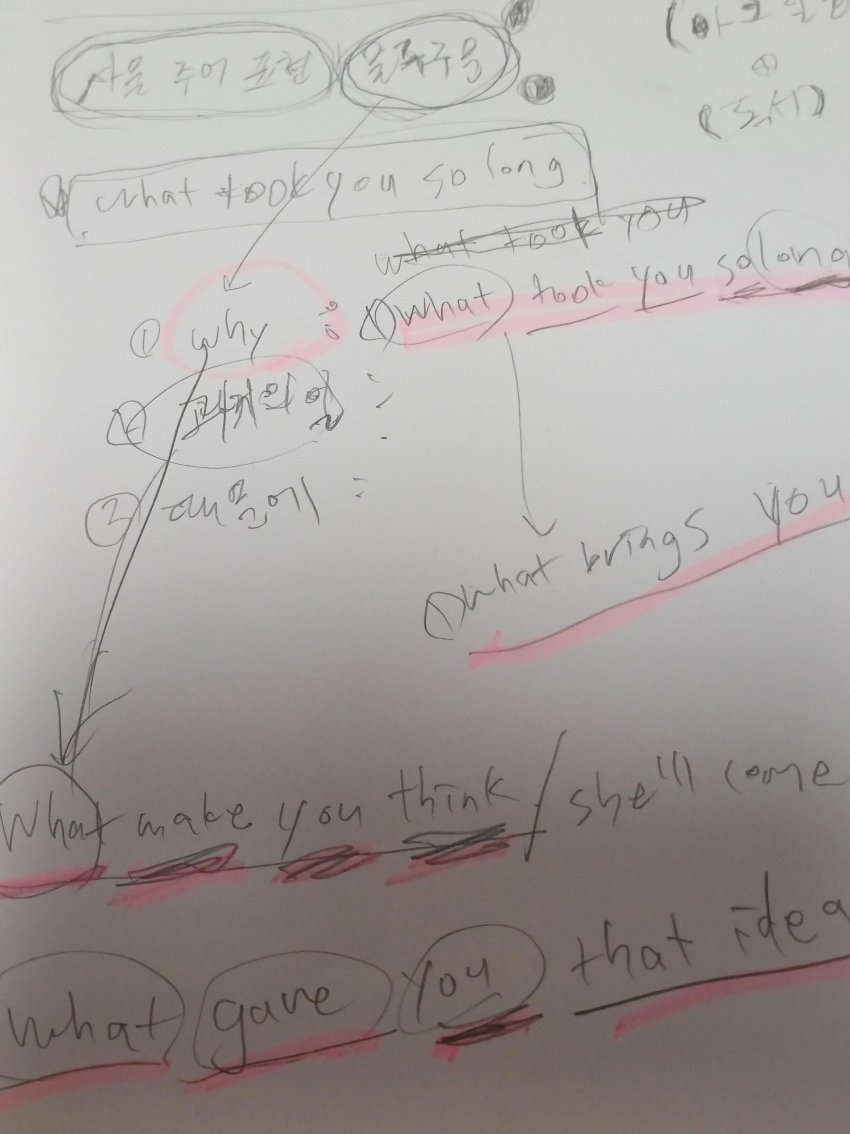 사물 주어 표현 물주구문
(독시)
what took you so long
what took you
① why : ① what took you so long
② 과거의 일 :
③ 때문에 :
① what brings you
What make you think / she'll come
what gave you that idea